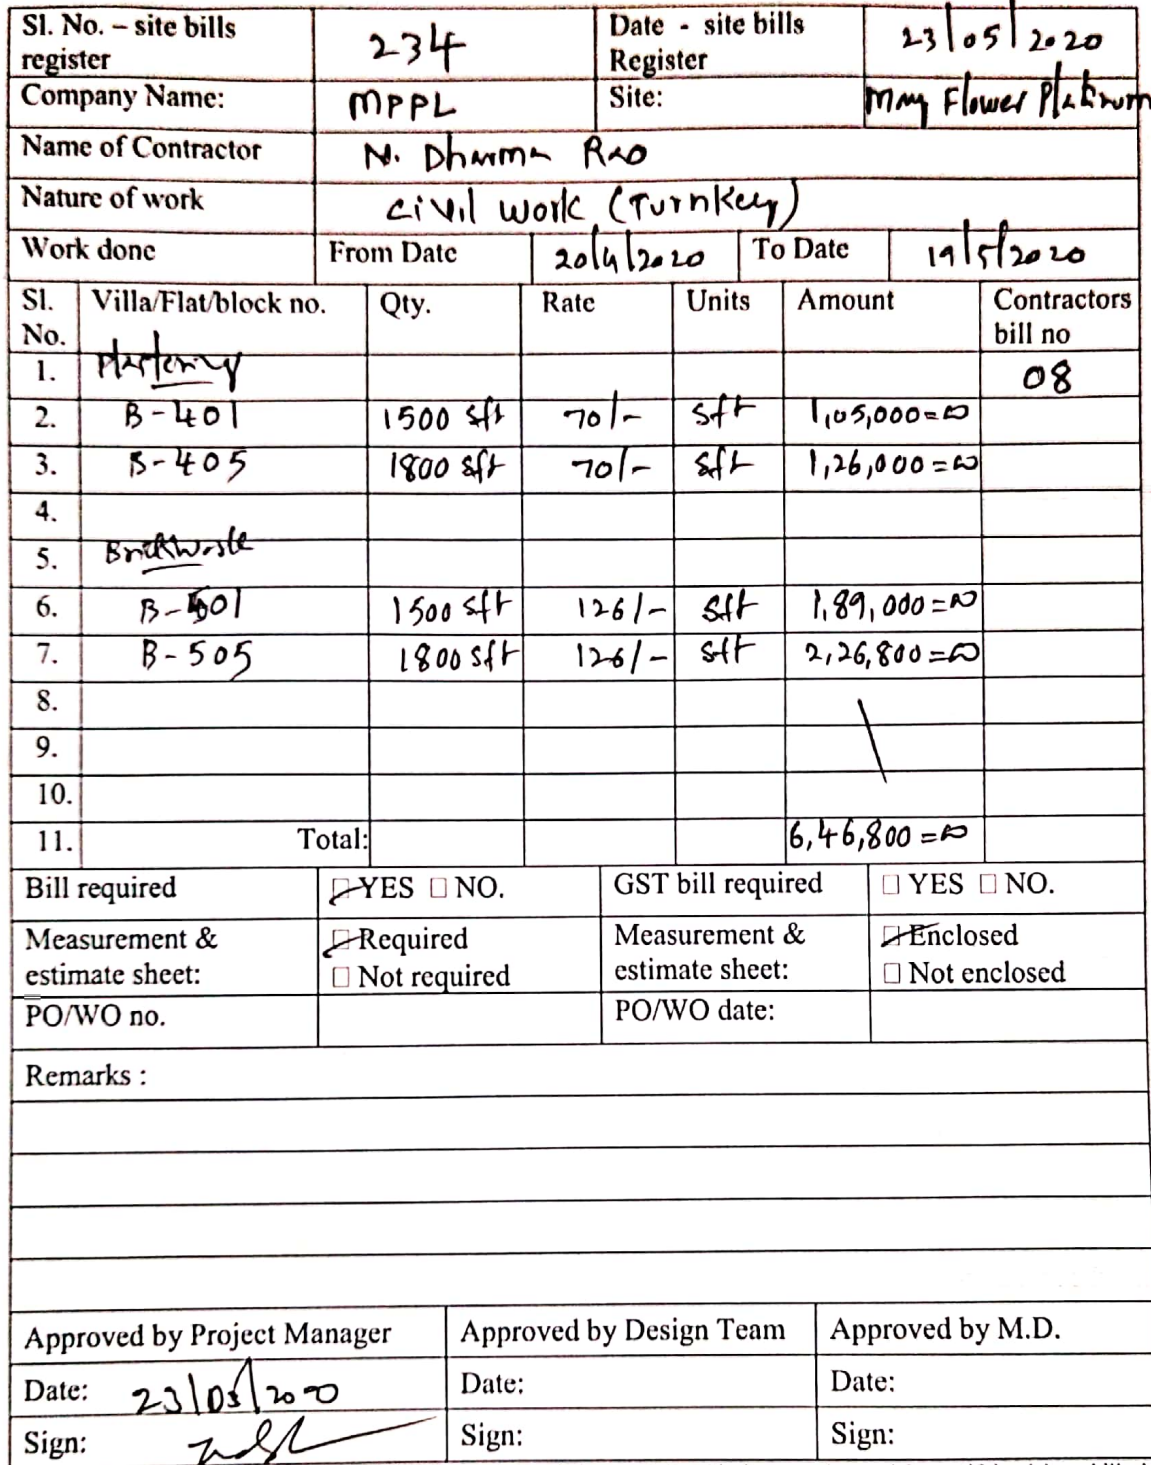 Sl. No. – site bills register 234 Date - site bills Register 23/05/2020
Company Name: MPPL Site: May Flower Platinum
Name of Contractor N. Dharma Rao
Nature of work Civil work (Turnkey)
Work done From Date 20/4/2020 To Date 19/5/2020
Sl. No. Villa/Flat/block no. Qty. Rate Units Amount Contractors bill no
1. Plastering 08
2. B-401 1500 sft 70/- sft 1,05,000=00
3. B-405 1800 sft 70/- sft 1,26,000=00
4.
5. Brickwork
6. B-501 1500 sft 126/- sft 1,89,000=00
7. B-505 1800 sft 126/- sft 2,26,800=00
8.
9.
10.
11. Total: 6,46,800=00
Bill required YES NO. GST bill required YES NO.
Measurement & estimate sheet: Required Not required Measurement & estimate sheet: Enclosed Not enclosed
PO/WO no. PO/WO date:
Remarks :
Approved by Project Manager Approved by Design Team Approved by M.D.
Date: 23/05/2020 Date: Date:
Sign: Sign: Sign: